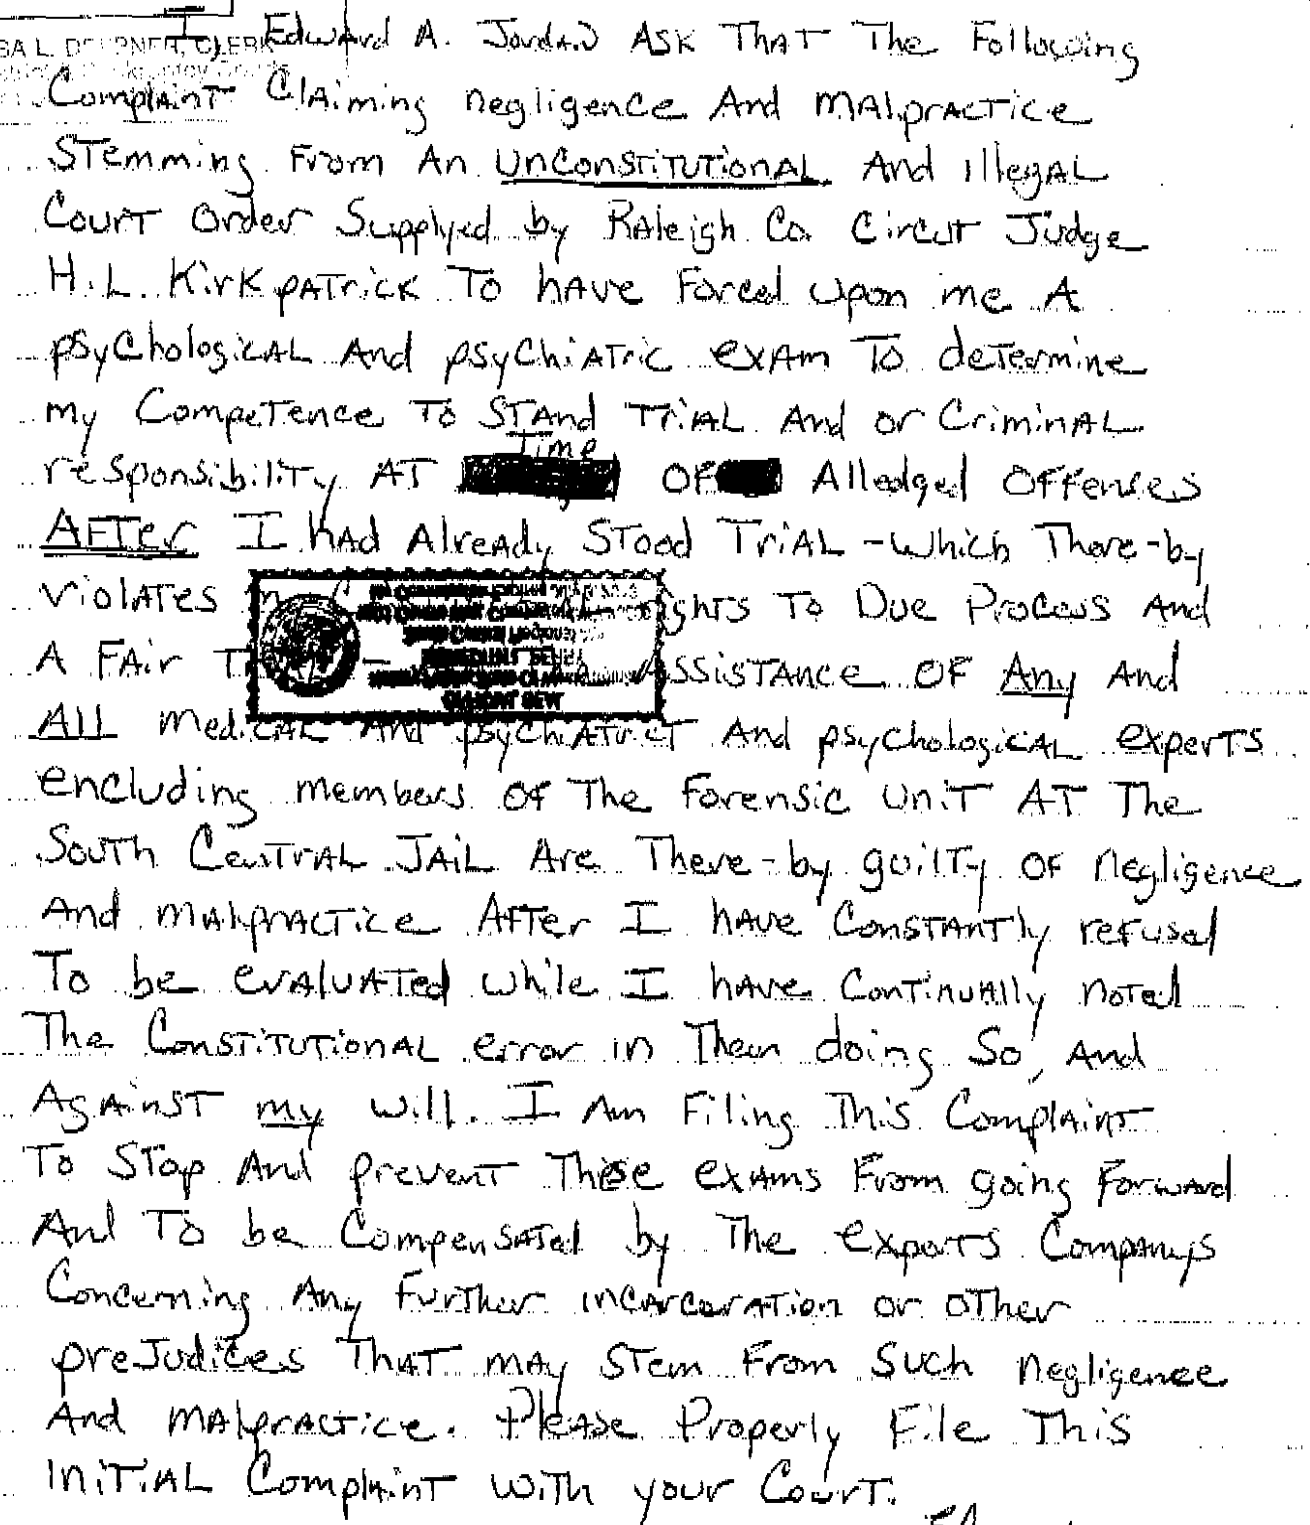 I, Edward A. Jordan ASK THAT The Following
Complaint Claiming negligence And MALpracTice
STemming From An UnConsTiTuTionAL And illegAL
CourT Order Supplyed by Raleigh Co. CircuT Judge
H.L. KirkpATrick To hAve Forced upon me A
psychologicAL And psychiATric exAm To deTermine
my CompeTence To STAnd TriAL And or CriminAL
responsibiliTy AT Time OF Alledged OFFenses
AFTer I hAd AlreAdy STood TriAL - which There-by
violATes righTs To Due Process And
A FAir AssisTAnce OF Any And
ALL medicAL And psychiATricT And psychologicAL experTs
encluding members of The Forensic uniT AT The
SouTh CenTrAL JAiL Are There-by guilTy OF negligence
And mAlprAcTice AfTer I hAve ConsTAnTly refused
To be evAluATed while I hAve ConTinuAlly noTed
The ConsTiTuTionAL error in Them doing So, And
AgAinsT my will. I Am Filing This ComplAinT
To STop And prevenT These exAms From going ForwArd
And To be CompensATed by The experTs Companys
Concerning Any FurTher incArcerATion or oTher
preJudices ThAT mAy STem From Such negligence
And mAlprAcTice. PleAse Properly File This
iniTiAL ComplAinT wiTh your CourT.